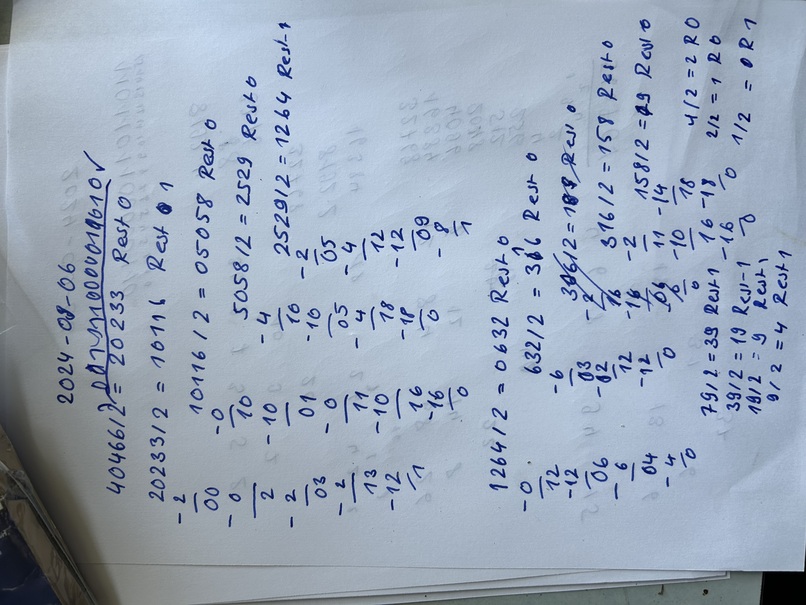 2024-08-06
40466/2 = 20233 Rest 0
20233/2 = 10116 Rest 1
-2
00
-0
2
-2
03
-2
13
-12
1
10116/2 = 05058 Rest 0
-0
10
-10
01
-0
11
-10
16
-16
0
5058/2 = 2529 Rest 0
-4
10
-10
05
-4
18
-18
0
2529/2 = 1264 Rest 1
-2
05
-4
12
-12
09
-8
1
1264/2 = 0632 Rest 0
-0
12
-12
06
-6
04
-4
0
632/2 = 316 Rest 0
-6
03
-02
12
-12
0
316/2 = 158 Rest 0
-2
11
-10
16
-16
0
158/2 = 79 Rest 0
-14
18
-18
0
79/2 = 39 Rest 1
39/2 = 19 Rest 1
19/2 = 9 Rest 1
9/2 = 4 Rest 1
4/2 = 2 R0
2/2 = 1 R0
1/2 = 0 R1